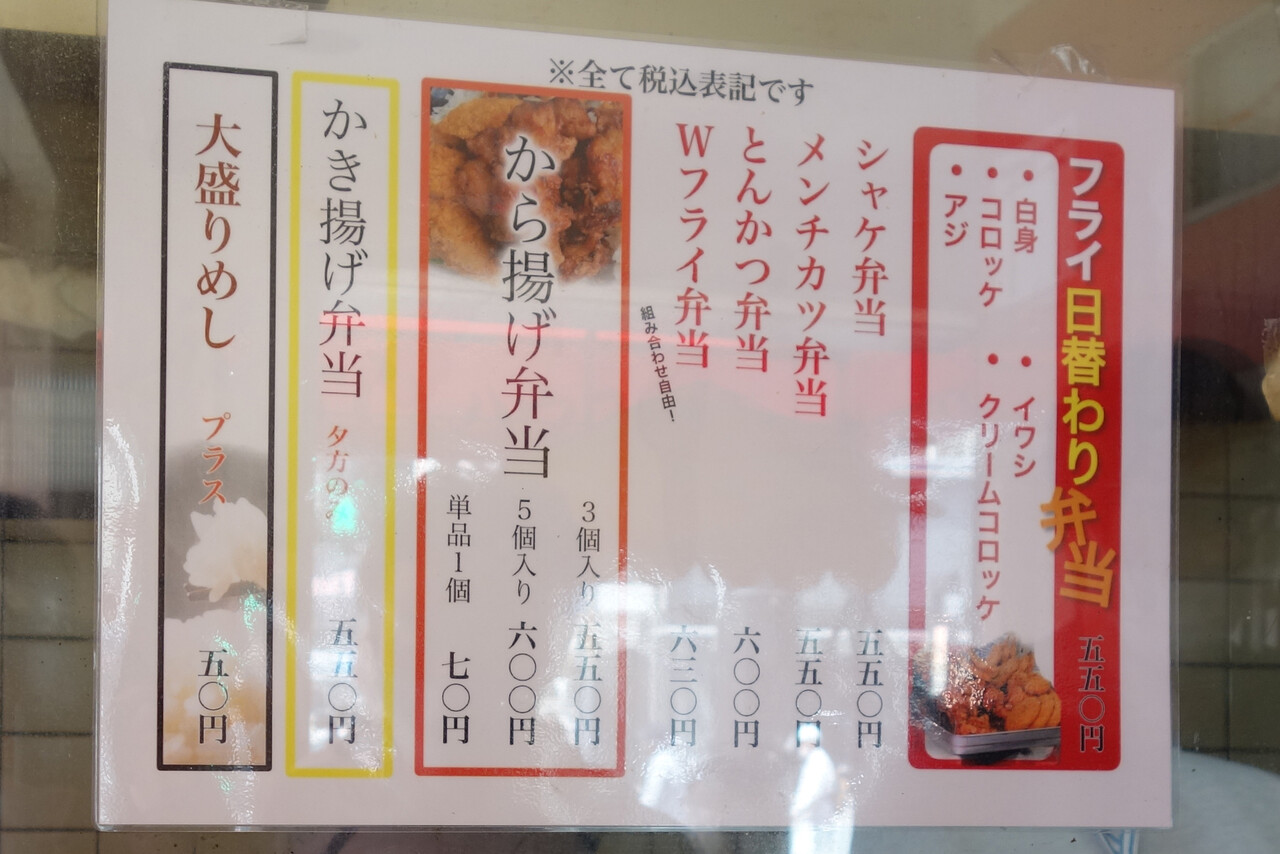 ※全て税込表記です
フライ日替わり弁当 五五〇円
・白身 ・イワシ
・コロッケ ・クリームコロッケ
・アジ
シャケ弁当 五五〇円
メンチカツ弁当 五五〇円
とんかつ弁当 六〇〇円
Wフライ弁当 六三〇円
組み合わせ自由!
から揚げ弁当
3個入り 五五〇円
5個入り 六〇〇円
単品1個 七〇円
かき揚げ弁当 夕方のみ 五五〇円
大盛りめし プラス 五〇円